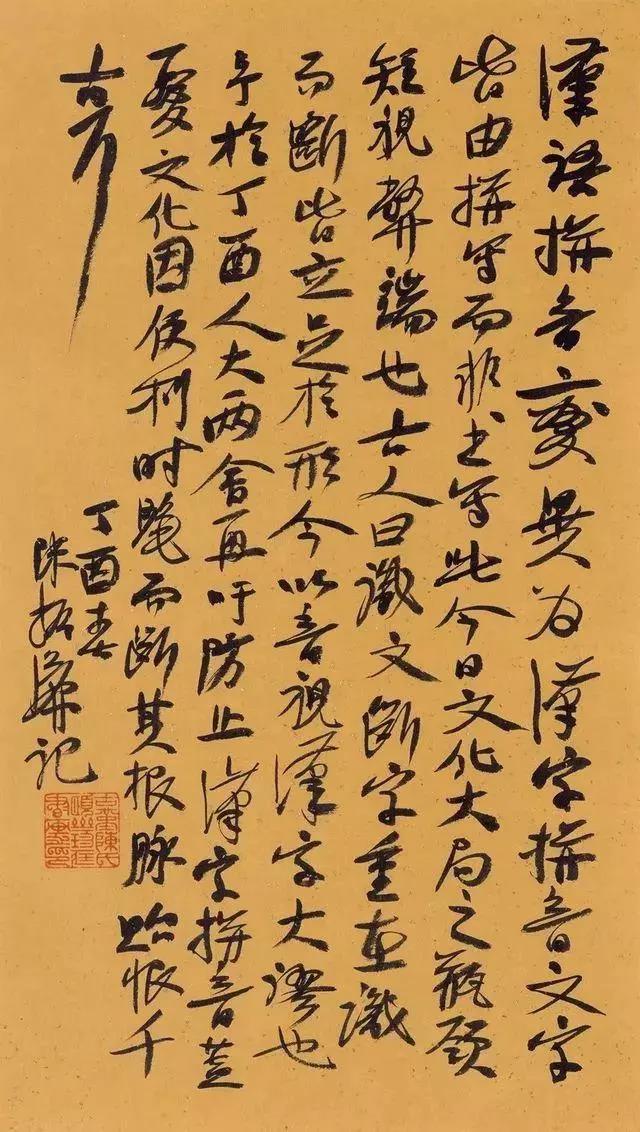 漢語拼音變異为漢字拼音文字
皆由拼写而非书写此今日文化大局之瓶颈
短視弊端也古人曰識文斷字重在識
而斷皆立足於形今以音視漢字大謬也
予於丁酉人大兩會再吁防止漢字拼音蓋
憂文化因便利时髦而斷其根脉貽恨千
古
丁酉春
陈振濂记